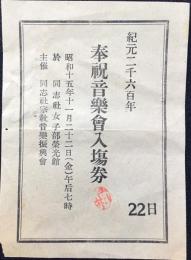 紀元二千六百年
奉祝音樂會入場券
昭和十五年十一月二十二日(金)午后七時
於 同志社女子部榮光館
主催 同志社宗教音樂振興會
22日